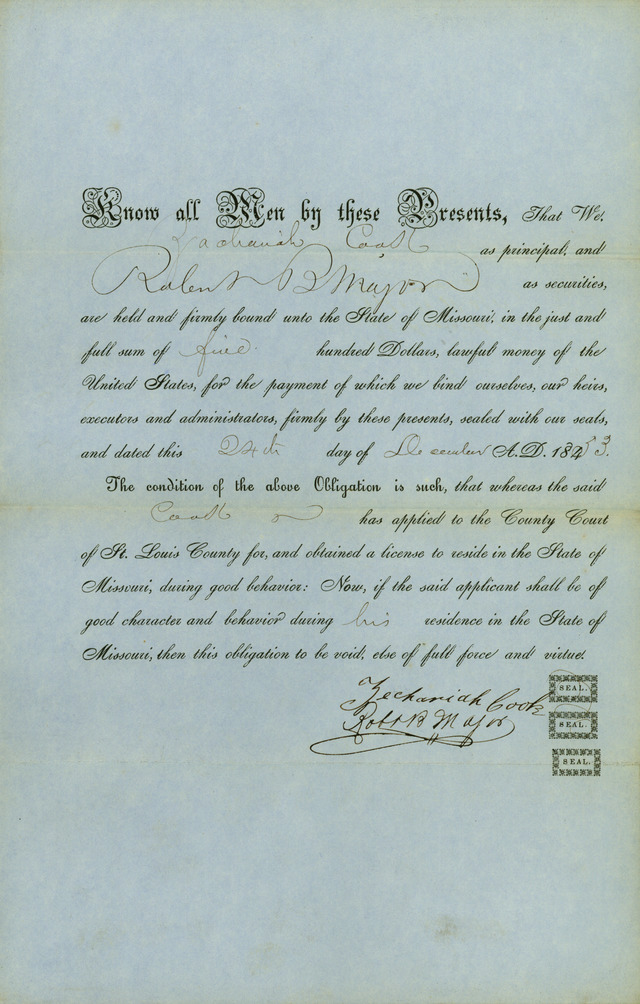 Know all Men by these Presents, That We,
Zachariah Cook as principal, and
Robert B Major as securities,
are held and firmly bound unto the State of Missouri, in the just and
full sum of five hundred Dollars, lawful money of the
United States, for the payment of which we bind ourselves, our heirs,
executors and administrators, firmly by these presents, sealed with our seals,
and dated this 24th day of December A.D. 1853.
The condition of the above Obligation is such, that whereas the said
Cook has applied to the County Court
of St. Louis County for, and obtained a license to reside in the State of
Missouri, during good behavior: Now, if the said applicant shall be of
good character and behavior during his residence in the State of
Missouri, then this obligation to be void, else of full force and virtue.
Zechariah Cook SEAL.
Robt B Major SEAL.
SEAL.